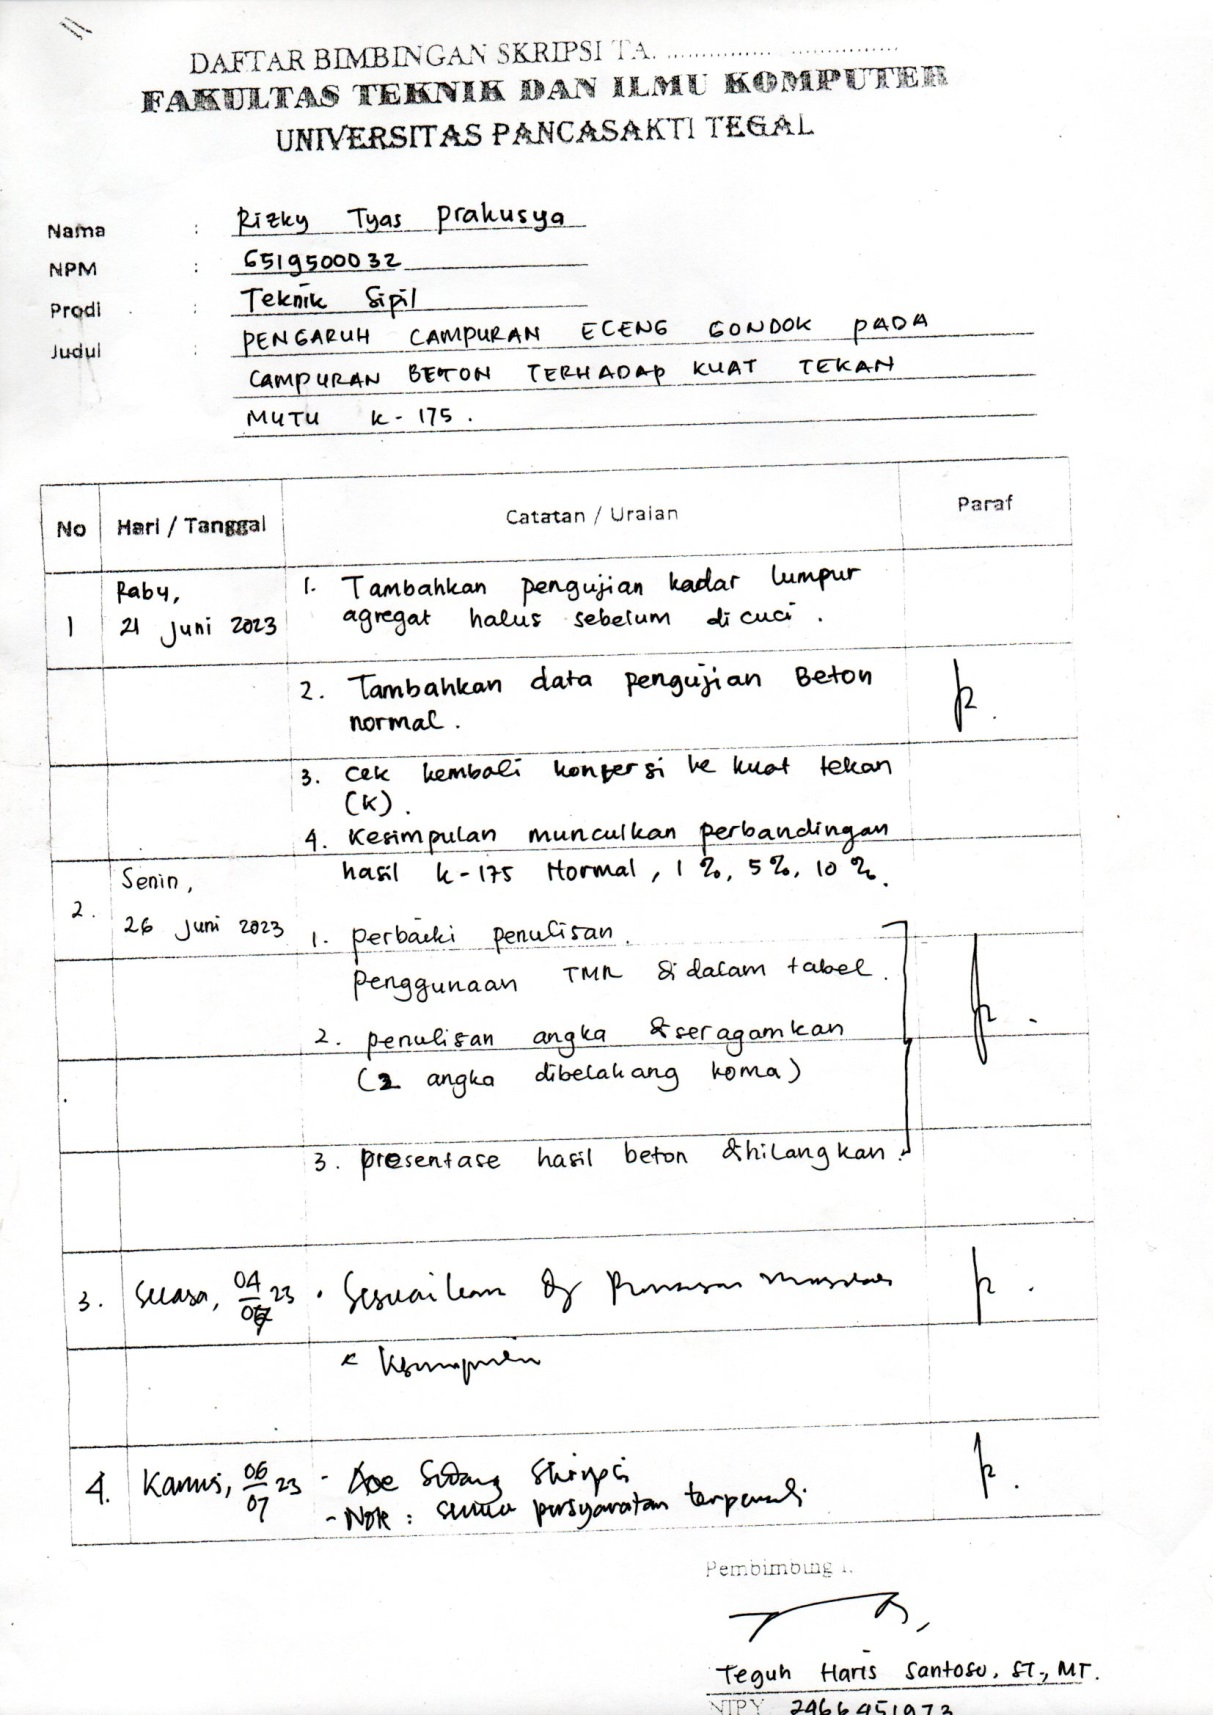 DAFTAR BIMBINGAN SKRIPSI TA. ................ ................
FAKULTAS TEKNIK DAN ILMU KOMPUTER
UNIVERSITAS PANCASAKTI TEGAL
Nama : Rizky Tyas Prakusya
NPM : 6519500032
Prodi : Teknik Sipil
Judul : PENGARUH CAMPURAN ECENG GONDOK PADA
CAMPURAN BETON TERHADAP KUAT TEKAN
MUTU K-175.
No Hari / Tanggal Catatan / Uraian Paraf
1 Rabu, 21 Juni 2023
1. Tambahkan pengujian kadar lumpur
agregat halus sebelum di cuci.
2. Tambahkan data pengujian Beton
normal.
3. Cek kembali konversi ke kuat tekan
(K).
4. Kesimpulan munculkan perbandingan
hasil K-175 Normal, 1%, 5%, 10%.
2. Senin, 26 Juni 2023
1. perbaiki penulisan.
penggunaan TMR di dalam tabel.
2. penulisan angka diseragamkan
(2 angka dibelakang koma)
3. presentase hasil beton dihilangkan.
3. Selasa, 04/07 23 • Sesuaikan dg Rumusan Masalah
Kesimpulan
4. Kamis, 06/07 23 - Acc Sidang Skripsi
- Note : semua persyaratan terpenuhi
Pembimbing I.
Teguh Haris Santoso, ST., MT.
NIPY 2466451973